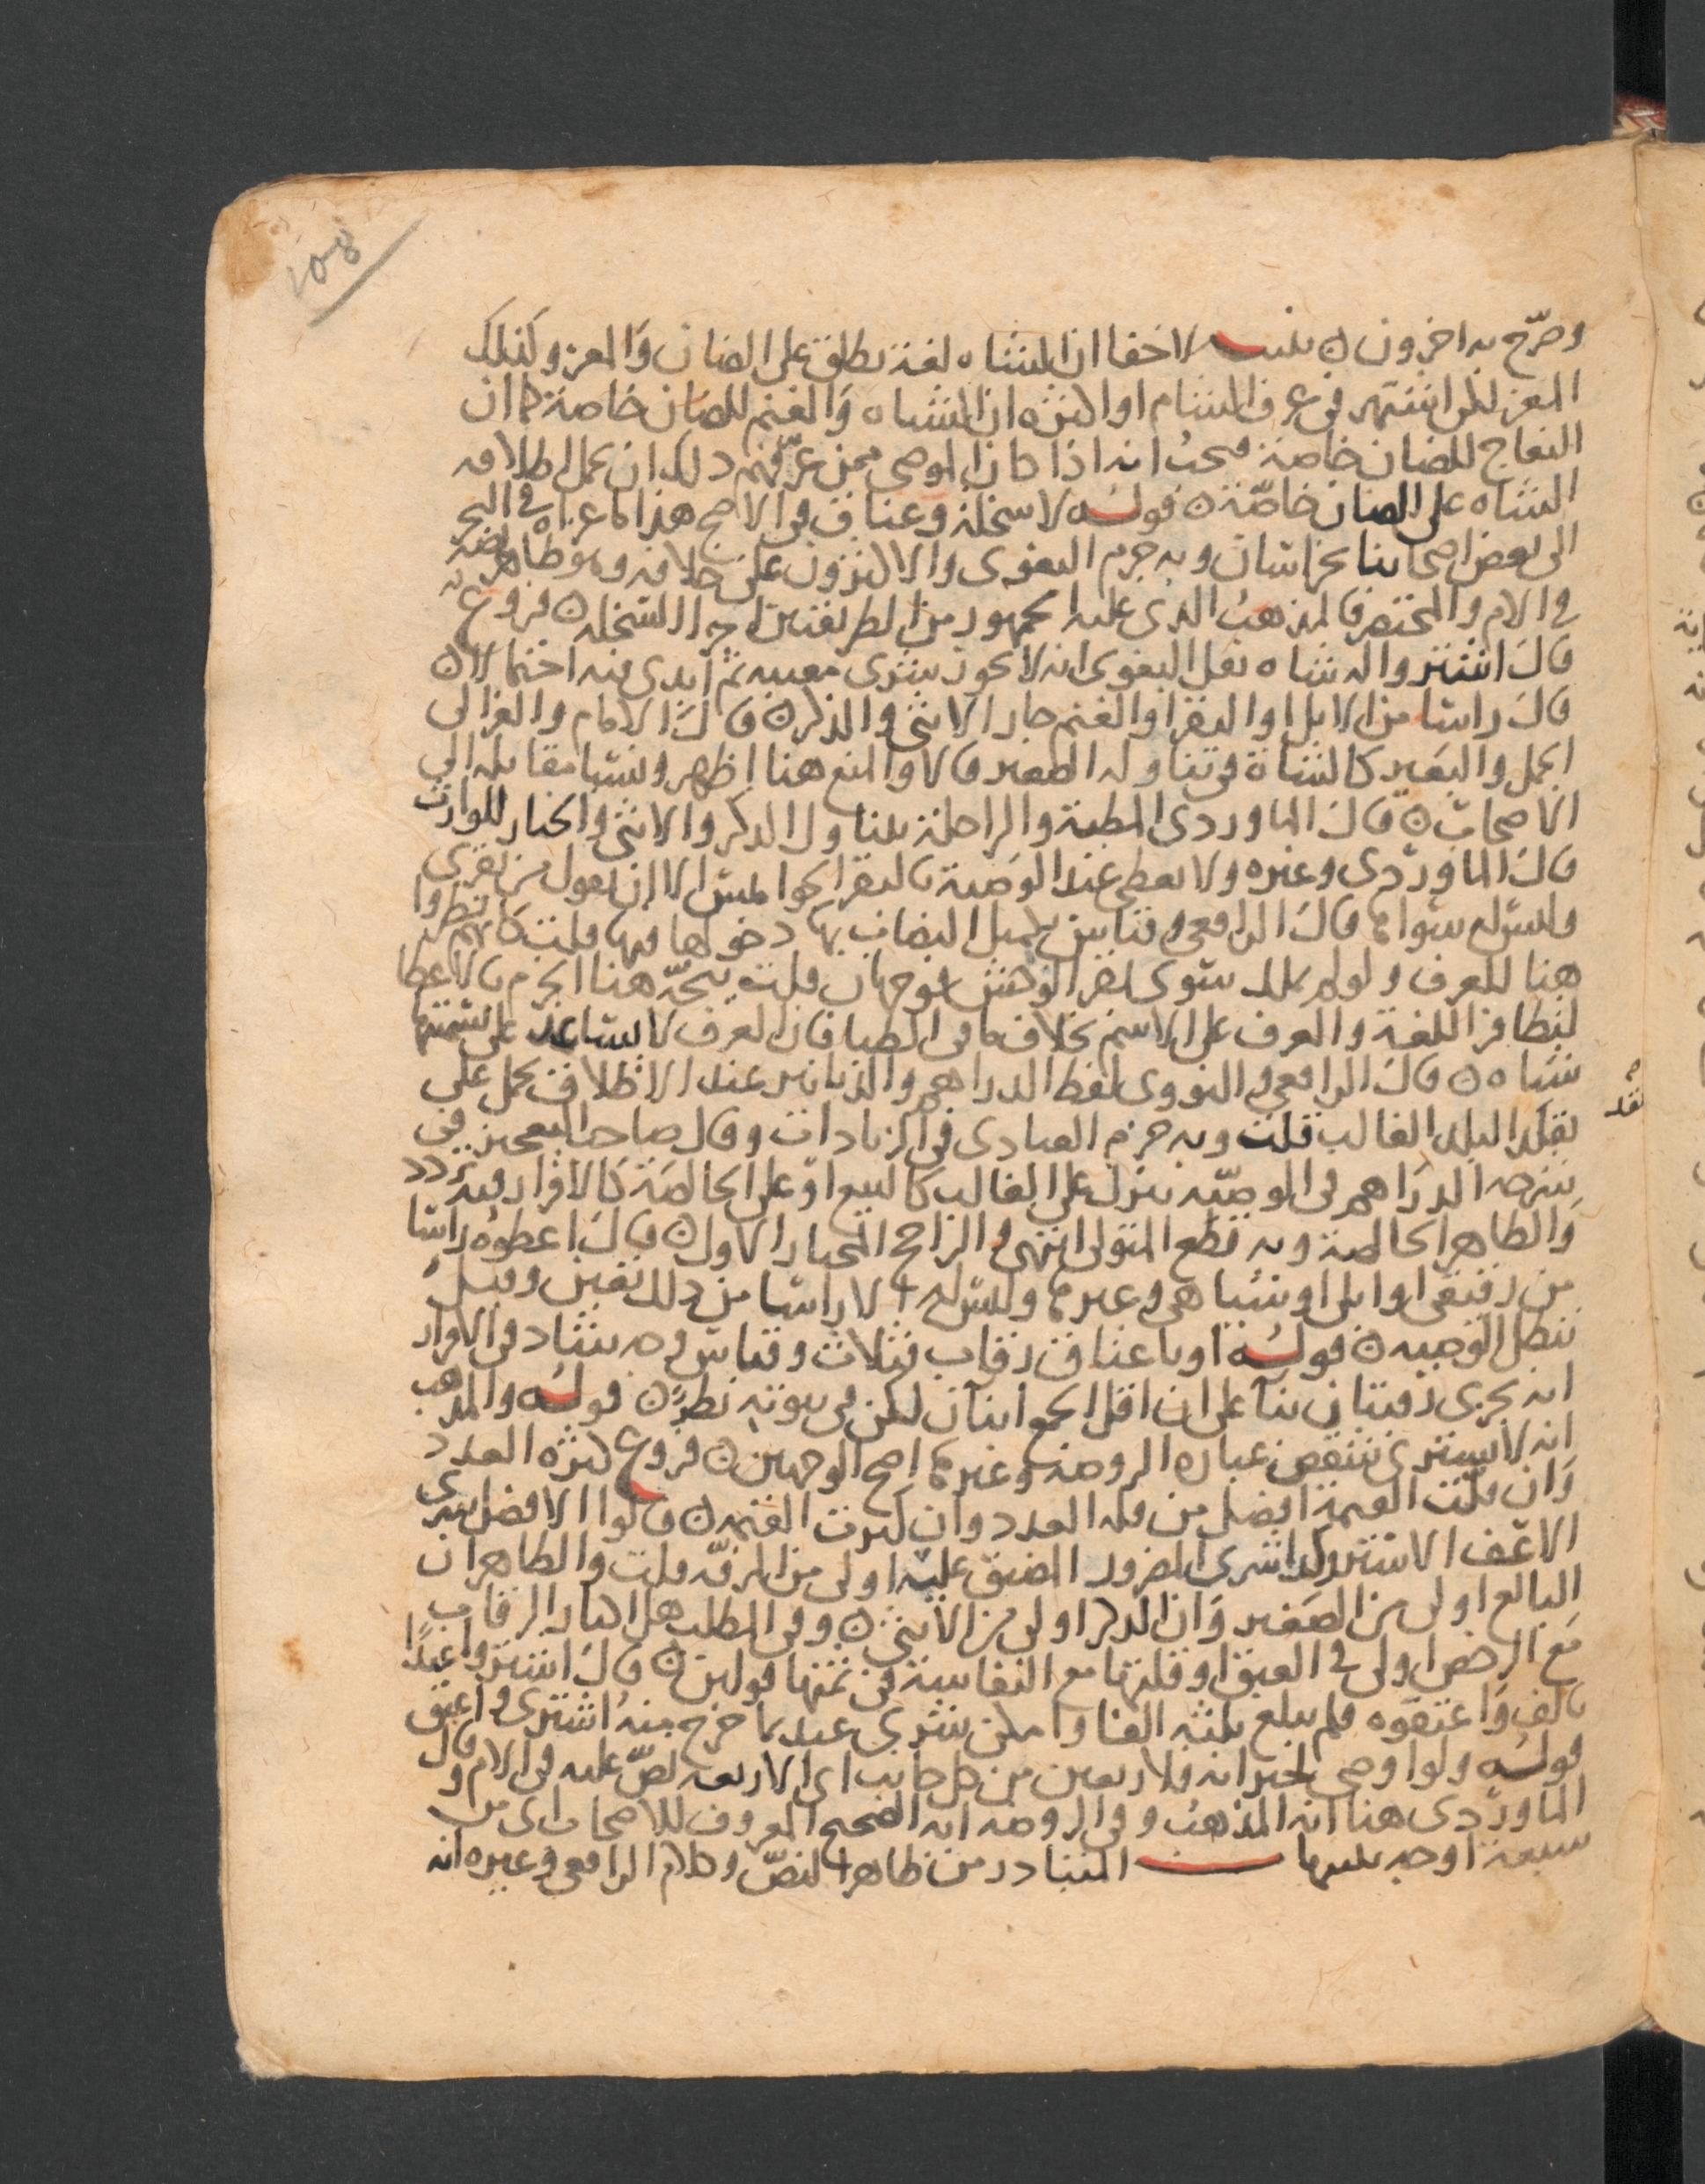 وصرح به اخرون ن تنبيه لا خفا ان الشاه لغة تطلق على الضان والمعز وكذلك
المعز لكن اشتهر في عرف الشام او اكثره ان الشاه والغنم للضان خاصة كما ان
النعاج للضان خاصة فيجب انه اذا كان الموصى ممن عرفهم ذلك ان يحمل اطلاقه
الشاه على الضان خاصة ن قوله لا سخلة وعناق في الاصح هذا ما عزاه في البحر
الى بعض اصحابنا بخراسان وبه جزم البغوى والاكثرون على خلافه وهو ظاهر نصه
في الام والمختصر فالمذهب الذى عليه الجمهور من الطريقين اجزا السخله ن فروع
قال اشتروا له شاه نقل البغوى انه لا يجوز يشترى معيبه ثم ابدى فيه احتمالا ن
قال راسا من الابل او البقر او الغنم جاز الانثى والذكر ن قال الامام والغزالي
الجمل والبعير كالشاة في تناوله الصغير قالا والمنع هنا اظهر ونسبا مقابله الي
الاصحاب ن قال الماوردى المطية والراحلة يتناول الذكر والانثى والخيار للوارث
قال الماوردى وغيره ولا يعطى عند الوصية بالبقر الجواميس الا ان يقول من بقرى
وليس له سواها قال الرافعي وقياس تكميل النصاب بها دخولها فيها قلت كانهم نظروا
هنا للعرف ولو لم يملك سوى بقر الوحش فوجهان قلت يتجه هنا الجزم بالاعطا
لتظافر اللغة والعرف على الاسم بخلاف ما في الظبا فان العرف لا يساعد على تسميتها
شاه ن قال الرافعي والنووى لفظ الدراهم والدنانير عند الاطلاق يحمل على
نقد
نقد البلد الغالب قلت وبه جزم العبادى في الزيادات وقال صاحب التعجيز في
شرحه الدراهم في الوصيه تنزل على الغالب كالبيع او على الخالصة كالاقرار فيه تردد
والظاهر الخالصة وبه قطع المتولى انتهى والراجح المختار الاول ن قال اعطوه راسا
من رقيقى او ابلى او شياهى وغيرها وليس له الا راسا من ذلك تعين وقيل
تبطل الوصيه ن قوله او باعتاق رقاب فثلاث وقياس وجه شاذ في الاقرار
انه يجزى رقبتان بنآ على ان اقل الجمع اثنان لكن في ثبوته نظر ن قوله والمذهب
انه لا يشترى شقص عباره الروضة وغيرها اصح الوجهين ن فروع كثره العدد
وان قلت القيمة افضل من قله العدد وان كثرت القيمه ن قالوا الافضل شرى
المضيق عليه اولى من المرفه قلت والظاهر ان
البالغ اولى من الصغير وان الذكر اولى من الانثى ن وفي المطلب هل اكثار الرقاب
مع الرخص اولى في العتق او قلتها مع النفاسة في ثمنها قولين ن قال اشتروا عبدا
بالف واعتقوه فلم يبلغ ثلثه الفا وامكن شرى عبد بما خرج منه اشترى واعتق
قوله ولو اوصى لجيرانه فلاربعين من كل جانب اى الاربعه نص عليه في الام وقال
الماوردى هنا انه المذهب وفي الروضه انه الصحيح المعروف للاصحاب اى من
سبعة اوجه المتبادر من ظاهر النص وكلام الرافعي وغيره انه